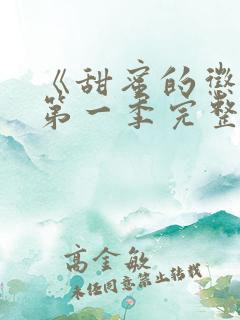 《甜蜜的惩
第一季完整
高金敏
未经同意禁止转载